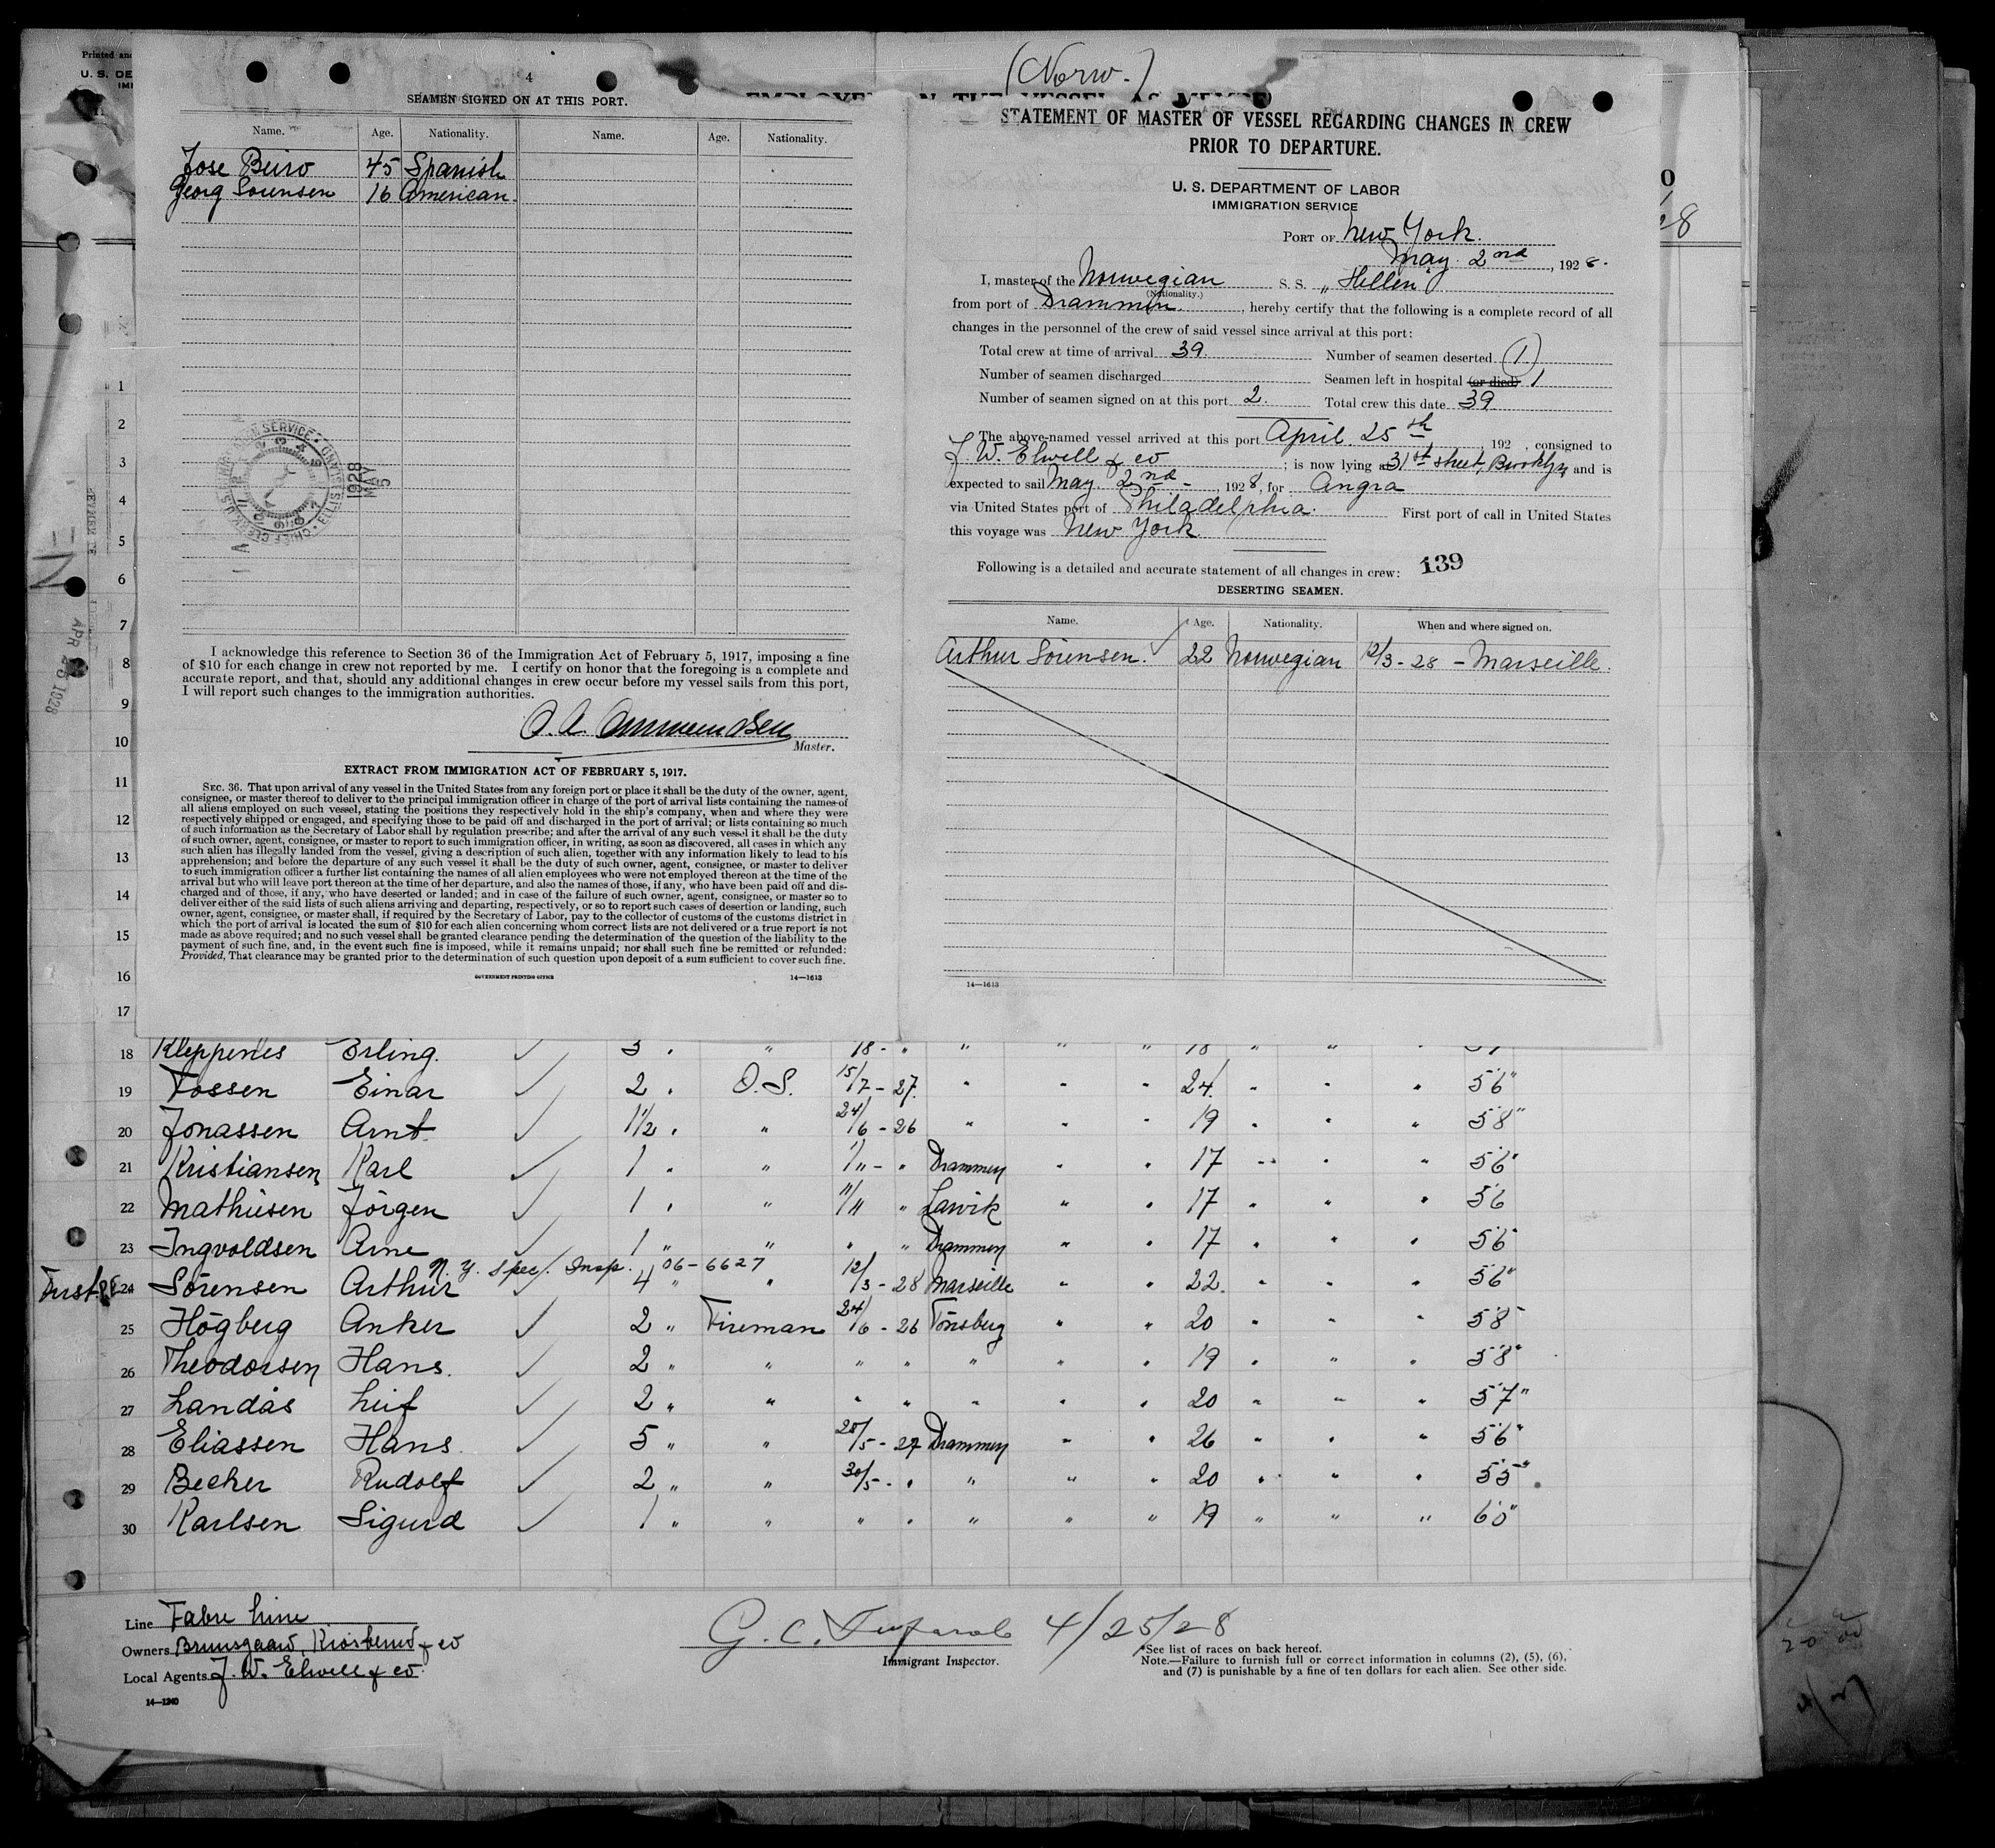 Printed and
U. S. DE
4
SEAMEN SIGNED ON AT THIS PORT.
Name. Age. Nationality. Name. Age. Nationality.
Jose Beiro 45 Spanish
Georg Sorensen 16 American.
CHIEF CLERK U.S. IMMIGRATION SERVICE ELLIS ISLAND
1928 MAY 5
I acknowledge this reference to Section 36 of the Immigration Act of February 5, 1917, imposing a fine
of $10 for each change in crew not reported by me. I certify on honor that the foregoing is a complete and
accurate report, and that, should any additional changes in crew occur before my vessel sails from this port,
I will report such changes to the immigration authorities.
Master.
EXTRACT FROM IMMIGRATION ACT OF FEBRUARY 5, 1917.
SEC. 36. That upon arrival of any vessel in the United States from any foreign port or place it shall be the duty of the owner, agent,
consignee, or master thereof to deliver to the principal immigration officer in charge of the port of arrival lists containing the names of
all aliens employed on such vessel, stating the positions they respectively hold in the ship's company, when and where they were
respectively shipped or engaged, and specifying those to be paid off and discharged in the port of arrival; or lists containing so much
of such information as the Secretary of Labor shall by regulation prescribe; and after the arrival of any such vessel it shall be the duty
of such owner, agent, consignee, or master to report to such immigration officer, in writing, as soon as discovered, all cases in which any
such alien has illegally landed from the vessel, giving a description of such alien, together with any information likely to lead to his
apprehension; and before the departure of any such vessel it shall be the duty of such owner, agent, consignee, or master to deliver
to such immigration officer a further list containing the names of all alien employees who were not employed thereon at the time of the
arrival but who will leave port thereon at the time of her departure, and also the names of those, if any, who have been paid off and dis-
charged and of those, if any, who have deserted or landed; and in case of the failure of such owner, agent, consignee, or master so to
deliver either of the said lists of such aliens arriving and departing, respectively, or so to report such cases of desertion or landing, such
owner, agent, consignee, or master shall, if required by the Secretary of Labor, pay to the collector of customs of the customs district in
which the port of arrival is located the sum of $10 for each alien concerning whom correct lists are not delivered or a true report is not
made as above required; and no such vessel shall be granted clearance pending the determination of the question of the liability to the
payment of such fine, and, in the event such fine is imposed, while it remains unpaid; nor shall such fine be remitted or refunded:
Provided, That clearance may be granted prior to the determination of such question upon deposit of a sum sufficient to cover such fine.
GOVERNMENT PRINTING OFFICE 14—1613
(Norw.)
STATEMENT OF MASTER OF VESSEL REGARDING CHANGES IN CREW
PRIOR TO DEPARTURE.
U. S. DEPARTMENT OF LABOR
IMMIGRATION SERVICE
PORT OF New York.
May 2nd, 1928.
I, master of the Norwegian S. S. "Hellen"
(Nationality.)
from port of Drammen., hereby certify that the following is a complete record of all
changes in the personnel of the crew of said vessel since arrival at this port:
Total crew at time of arrival 39. Number of seamen deserted (1)
Number of seamen discharged Seamen left in hospital (or died) 1
Number of seamen signed on at this port 2. Total crew this date 39
The above-named vessel arrived at this port April 25th, 192 , consigned to
J. W. Elwell & co; is now lying at 31st street, Brooklyn, and is
expected to sail May 2nd -, 1928, for Angra
via United States port of Philadelphia. First port of call in United States
this voyage was New York.
Following is a detailed and accurate statement of all changes in crew: 139
DESERTING SEAMEN.
Name. Age. Nationality. When and where signed on.
Arthur Sörensen. 22 Norwegian 12/3-28 - Marseille.
14—1613
APR 25 1928
1
2
3
4
5
6
7
8
9
10
11
12
13
14
15
16
17
18 Kleppenes Erling. 3 " " 18- " " " " 18 " " "
19 Fossen Einar 2 " O.S. 15/7-27. " " " 24. " " " 5'6"
20 Jonassen Arnt 1 1/2 " " 24/6-26 " " " 19 " " " 5'8"
21 Kristiansen Karl 1 " " 1/11- " Drammen " " 17 " " " 5'6"
22 Mathiesen Jörgen 1 " " 11/11 " Larvik " " 17 " " " 5'6
23 Ingvoldsen Arne 1 " " " " Drammen " " 17 " " " 5'6"
N.Y. Spec. Insp. 06-6627
24 Sörensen Arthur 4 " " 12/3-28 Marseille " " 22. " " " 5'6"
25 Högberg Anker 2 " Fireman 24/6-26 Tönsberg " " 20 " " " 5'8"
26 Theodorsen Hans. 2 " " " " " " " 19 " " " 5'8"
27 Landås Leif 2 " " " " " " " 20 " " " 5'7"
28 Eliassen Hans. 5 " " 28/5-27 Drammen " " 26 " " " 5'6"
29 Becker Rudolf 2 " " 30/5- " " " " 20 " " " 5'5"
30 Karlsen Sigurd 1 " " " " " " " 19 " " " 6'0"
Line Fabre Line
Owners & co
Local Agents J. W. Elwell & co.
14—1240
G. C. 4/25/28
Immigrant Inspector.
*See list of races on back hereof.
Note.—Failure to furnish full or correct information in columns (2), (5), (6),
and (7) is punishable by a fine of ten dollars for each alien. See other side.